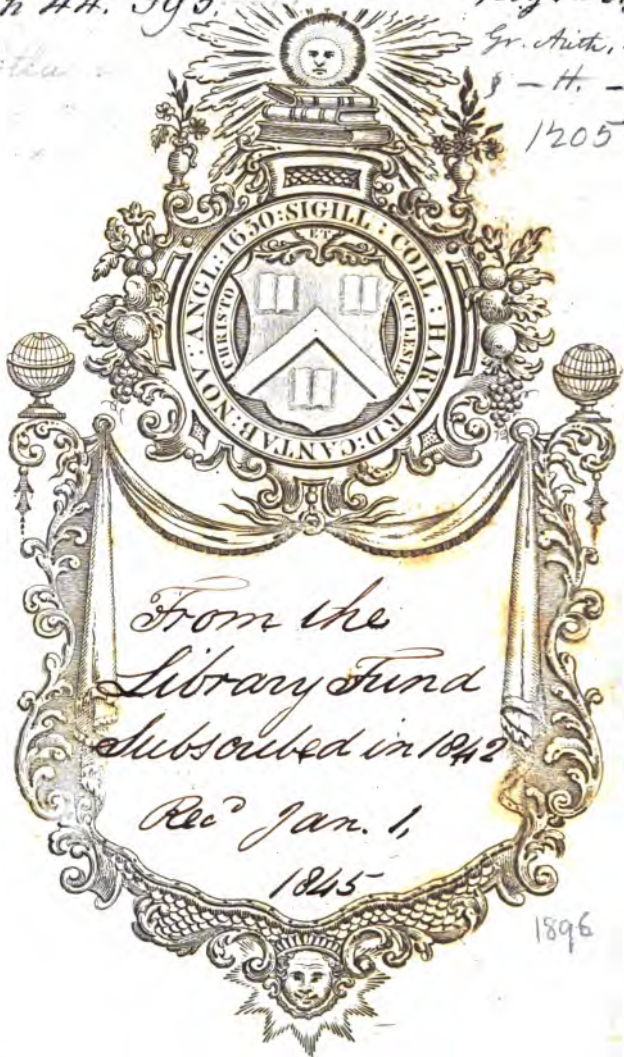 44. 395.
Gr. Auth.
§ – H. –
1205
SIGILL : COLL : HARVARD : CANTAB : NOV : ANGL : 1650 :
CHRISTO ET ECCLESIÆ
From the
Library Fund
Subscribed in 1842
Recd Jan. 1,
1845
1896